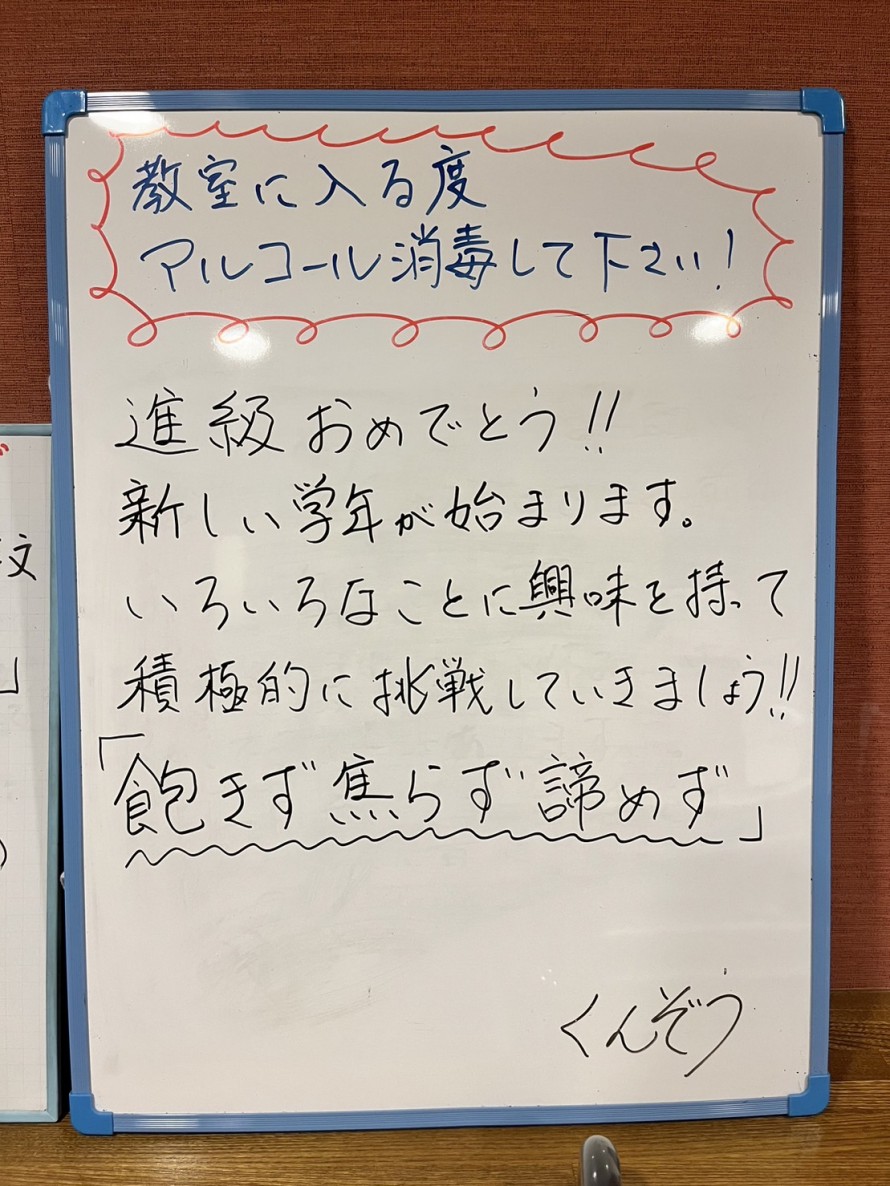 教室に入る度
アルコール消毒して下さい!
進級おめでとう!!
新しい学年が始まります。
いろいろなことに興味を持って
積極的に挑戦していきましょう!!
「飽きず焦らず諦めず」
くんぞう
文
」